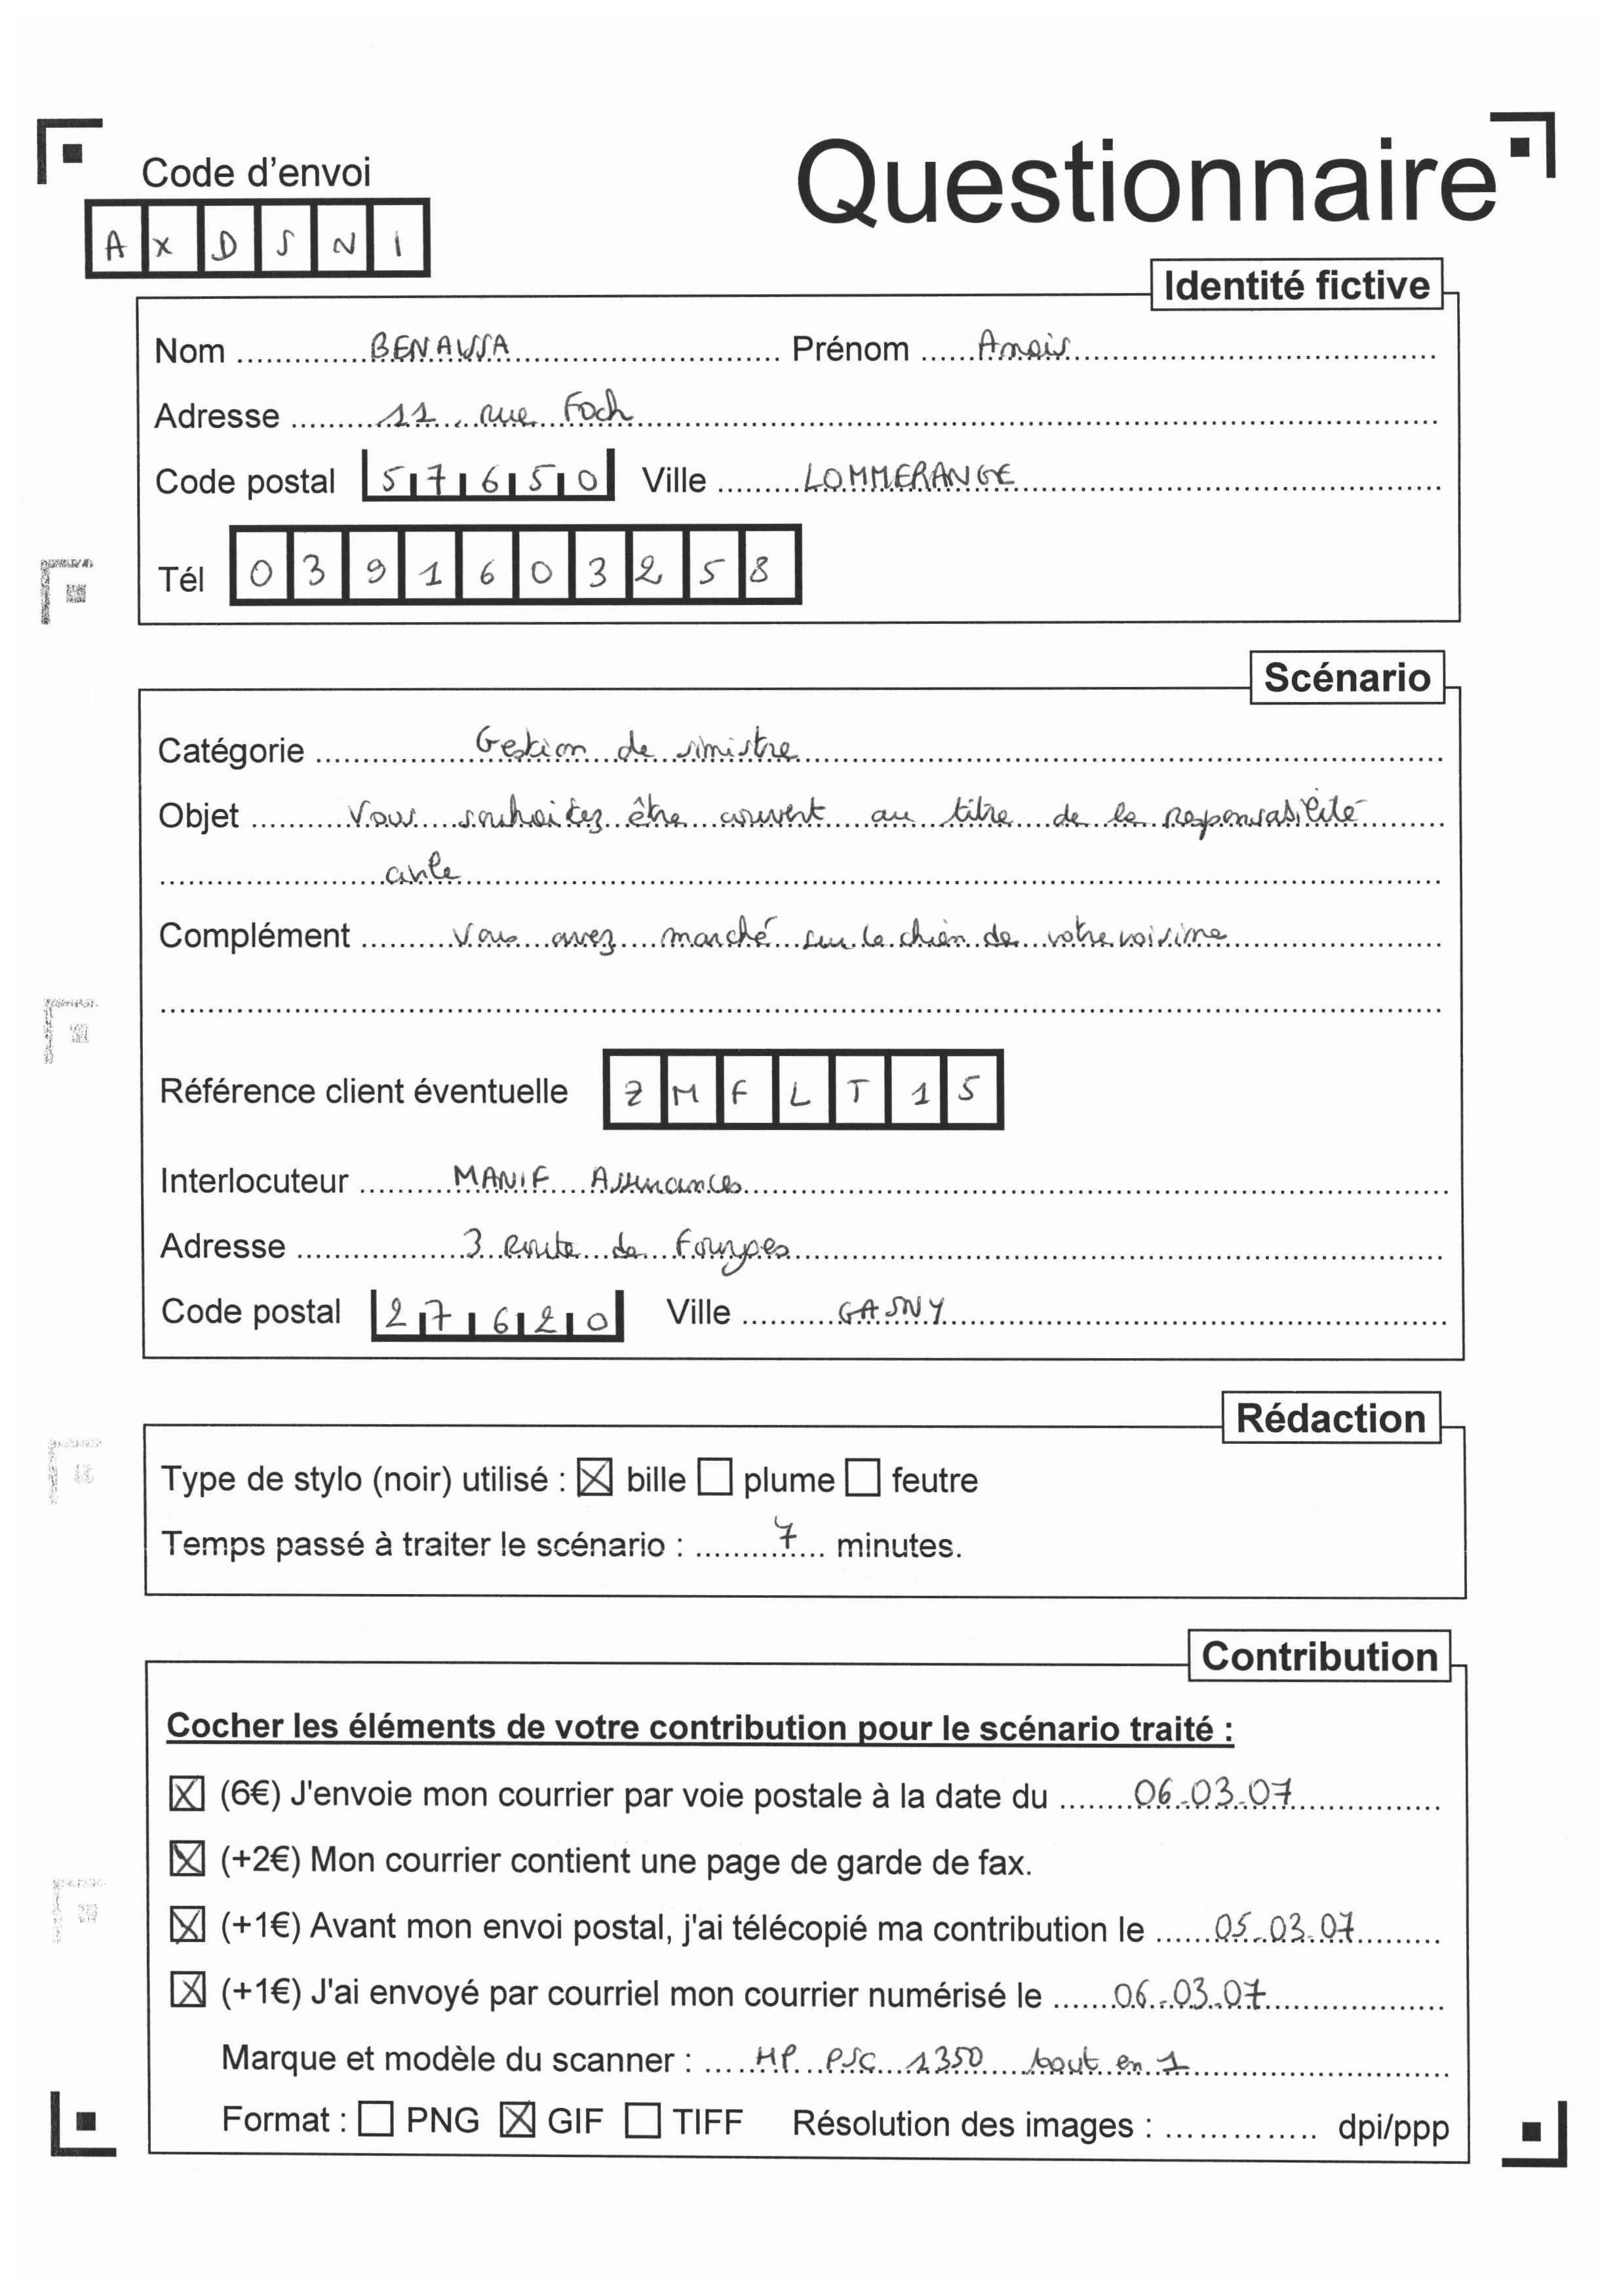 Code d'envoi
Questionnaire
A X D S N I
Identité fictive
Nom BENAISSA Prénom Anais
Adresse 11, rue Foch
Code postal 57650 Ville LOMMERANGE
Tél 0391603258
Scénario
Catégorie Gestion de sinistre
Objet Vous souhaitez être couvert au titre de la responsabilité
civile
Complément Vous avez marché sur le chien de votre voisine
Référence client éventuelle ZMFLT15
Interlocuteur MANIF Assurances
Adresse 3 Route de Fourges
Code postal 27620 Ville GASNY
Rédaction
Type de stylo (noir) utilisé : ☒ bille ☐ plume ☐ feutre
Temps passé à traiter le scénario : 7 minutes.
Contribution
Cocher les éléments de votre contribution pour le scénario traité :
☒ (6€) J'envoie mon courrier par voie postale à la date du 06-03-07
☒ (+2€) Mon courrier contient une page de garde de fax.
☒ (+1€) Avant mon envoi postal, j'ai télécopié ma contribution le 05-03-07
☒ (+1€) J'ai envoyé par courriel mon courrier numérisé le 06-03-07
Marque et modèle du scanner : HP PSC 1350 tout en 1
Format : ☐ PNG ☒ GIF ☐ TIFF Résolution des images : .............. dpi/ppp